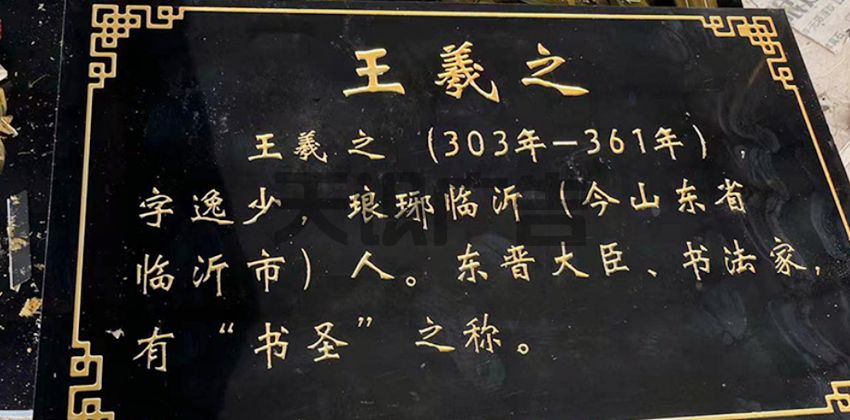 王羲之
王羲之（303年—361年），
字逸少，琅琊临沂（今山东省
临沂市）人。东晋大臣、书法家，
有“书圣”之称。
天汉广告